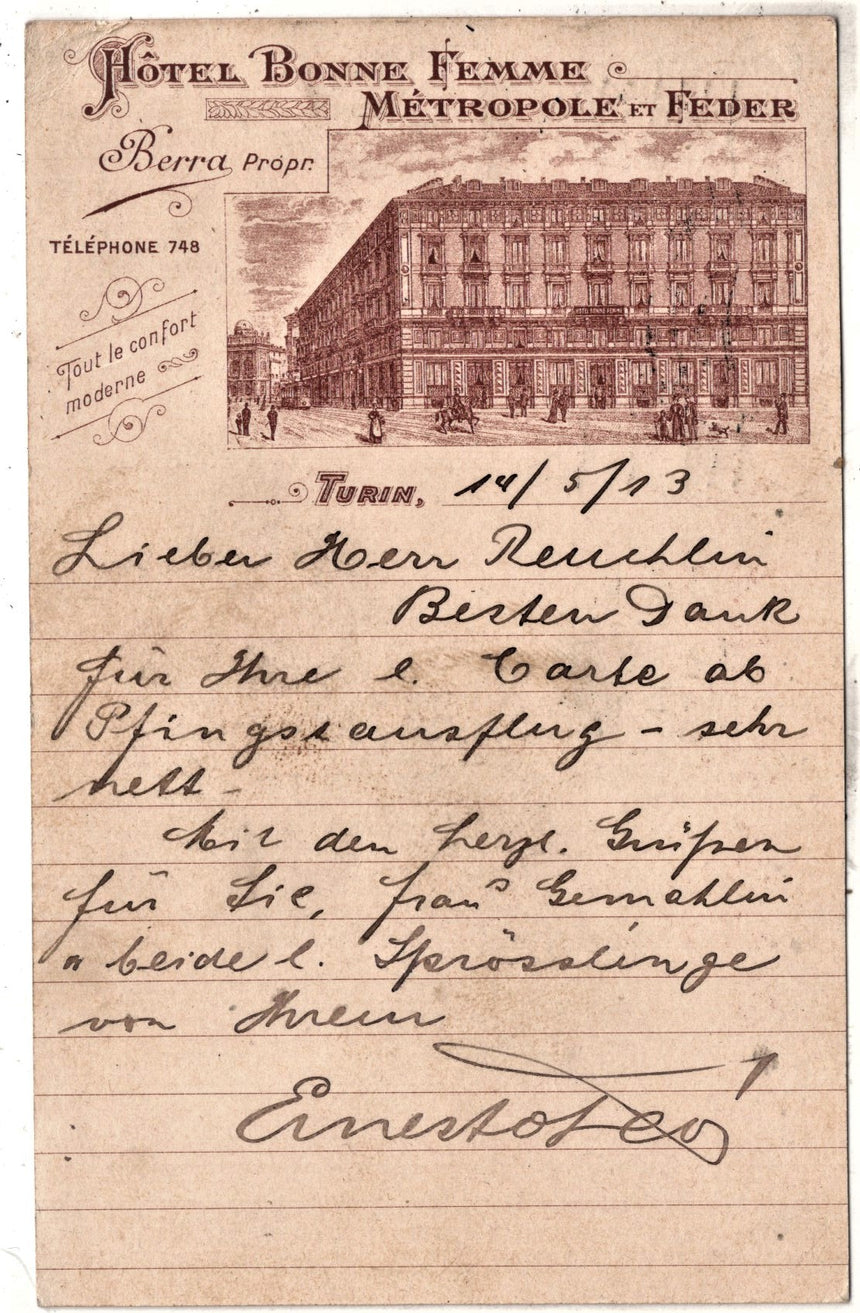 HÔTEL BONNE FEMME
MÉTROPOLE ET FEDER
Berra Propr.
TÉLÉPHONE 748
Tout le confort
moderne
TURIN, 14/5/13
Lieber Herr Reuchlin
Besten Dank
für Ihre l. Carte ab
Pfingstausflug - sehr
nett -
Mit den herzl. Grüßen
für Sie, Frau Gemahlin
" beide l. Sprösslinge
von Ihrem